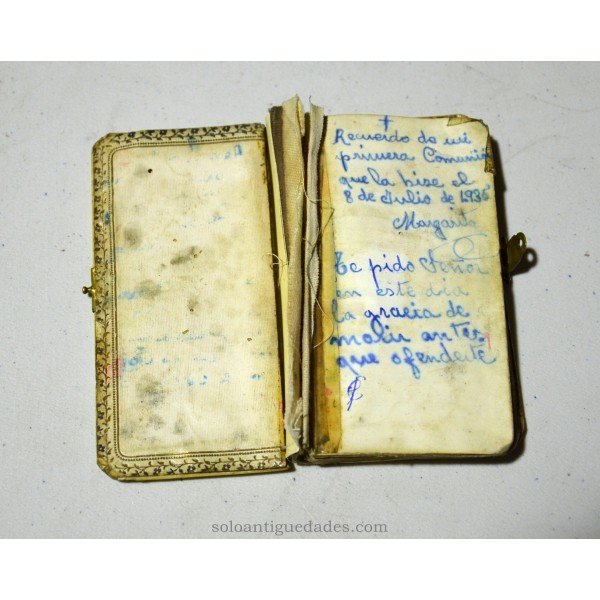 Recuerdo de mi
primera Comunió
que la hise el
8 de Julio de 1935
Margarita
Te pido Señor
en este dia
la gracia de
morir antes
que ofenderte
soloantiguedades.com